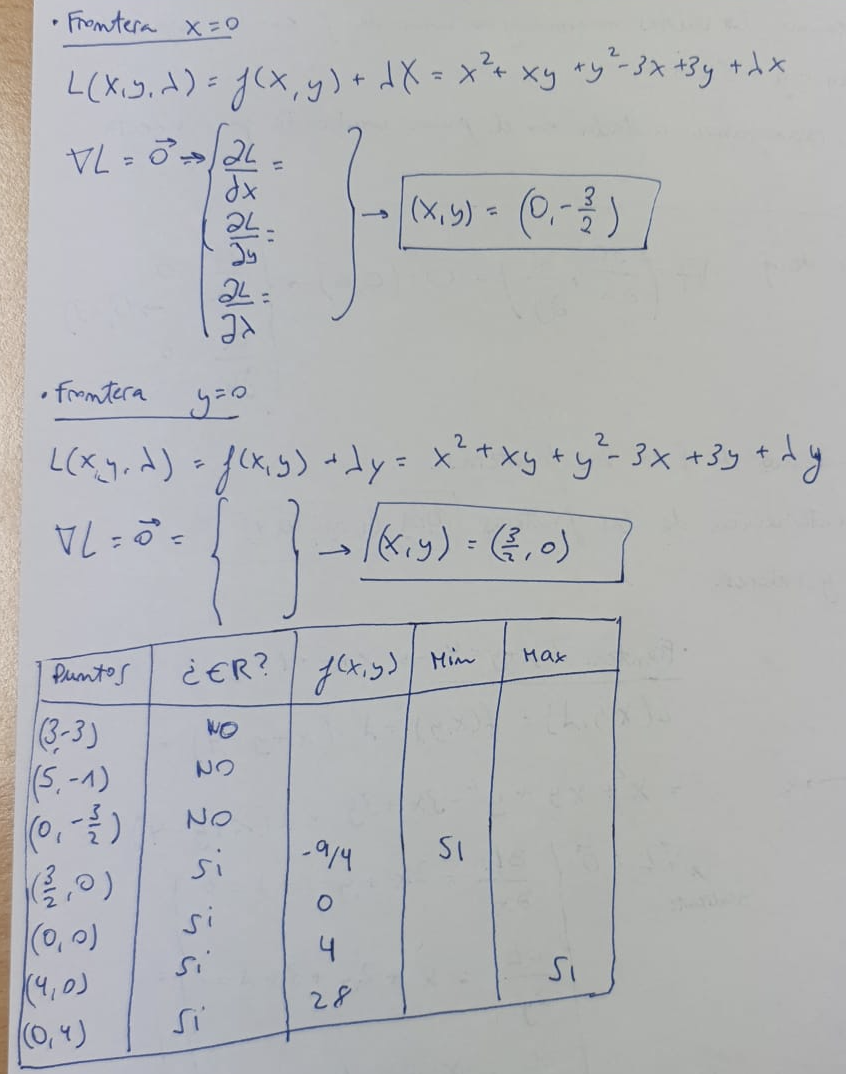 · Frontera x=0
L(x,y,λ) = f(x,y) + λx = x² + xy + y² - 3x + 3y + λx
∇L = 0⃗ ⇒ { ∂L/∂x =
∂L/∂y =
∂L/∂λ = } → (x,y) = (0, -3/2)
· Frontera y=0
L(x,y,λ) = f(x,y) + λy = x² + xy + y² - 3x + 3y + λy
∇L = 0⃗ = { } → (x,y) = (3/2, 0)
Puntos ¿∈R? f(x,y) Min Max
(3,-3) NO
(5,-1) NO
(0,-3/2) NO
(3/2,0) Si -9/4 SI
(0,0) Si 0
(4,0) Si 4
(0,4) Si 28 SI